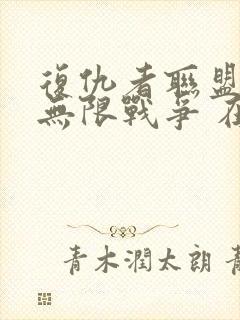 復仇者聯盟
無限戰爭
青木潤太朗